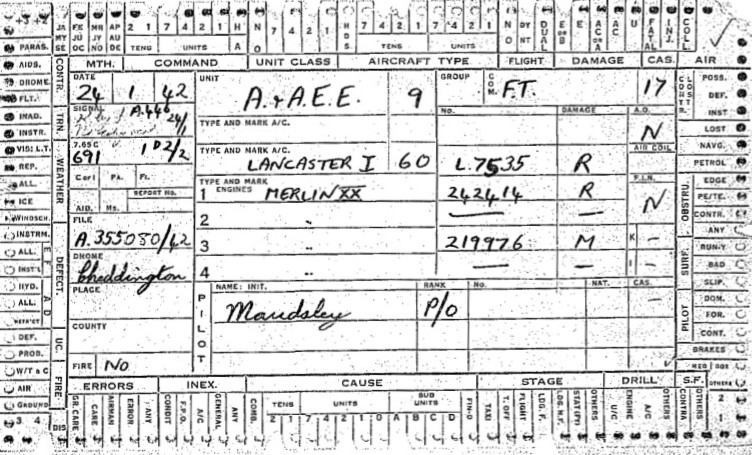 JA FE MR AP 2 1 7 4 2 1 H N 7 4 2 1 HDS. 7 4 2 1 7 4 2 1 NO DY DUAL E AC AC. U FATAL INJ. COLL.
MY JU JY AU TENS UNITS A O TENS UNITS NT OR B OR A
SE OC NO DC
PARAS. CONTR. MTH. COMMAND UNIT CLASS AIRCRAFT TYPE FLIGHT DAMAGE CAS. AIR
AIDS. DATE UNIT GROUP COM. POSS.
DROME. 24 1 42 A. & A.E.E. 9 F.T. 17 DEF.
FLT. INST
INAD. TRN. SIGNAL A.446 24/1 TYPE AND MARK A/C. NO. DAMAGE A.O. LOST
INSTR. N
VIS: L.T. 7.65C 1 D2/2 TYPE AND MARK A/C. AIR COIL NAVG.
REP. WEATHER 691 LANCASTER I 60 L.7535 R PETROL
ALL. Corl PA. Fl. TYPE AND MARK F.I.N. EDGE
ICE REPORT No. 1 ENGINES MERLIN XX 242414 R N OBSTRU. PE/TE.
WINDSCN. AID. Ms. 2 " — — CONTR.
INSTRM. FILE ANY
ALL. DEFECT. A.355080/42 3 " 219976 M K — SURF. RUN-Y
INST'L DROME 4 " — — I — BAD
HYD. Cheddington SLIP.
ALL. PLACE PILOT NAME: INIT. RANK No. NAT. CAS. PILOT DOM.
Maudsley P/O — FOR.
DEF. COUNTY CONT.
PROB. UC BRAKES
W/T & C FIRE No
AIR FIRE ERRORS INEX. CAUSE STAGE DRILL S.F. OTHERS
GROUND GR. CARE CARE AIRMAN ERROR ANY CONDIT F.P.O. A/C GENERAL ANY COMB. TENS UNITS SUB UNITS FIN-D TAXI T. OFF FLIGHT LDG. F. LDG. H.F. OTHERS U/C ENGINE A/C OTHERS CONTRA OTHERS 2
3 4 DIS 2 1 7 4 2 1 0 A B C D 1